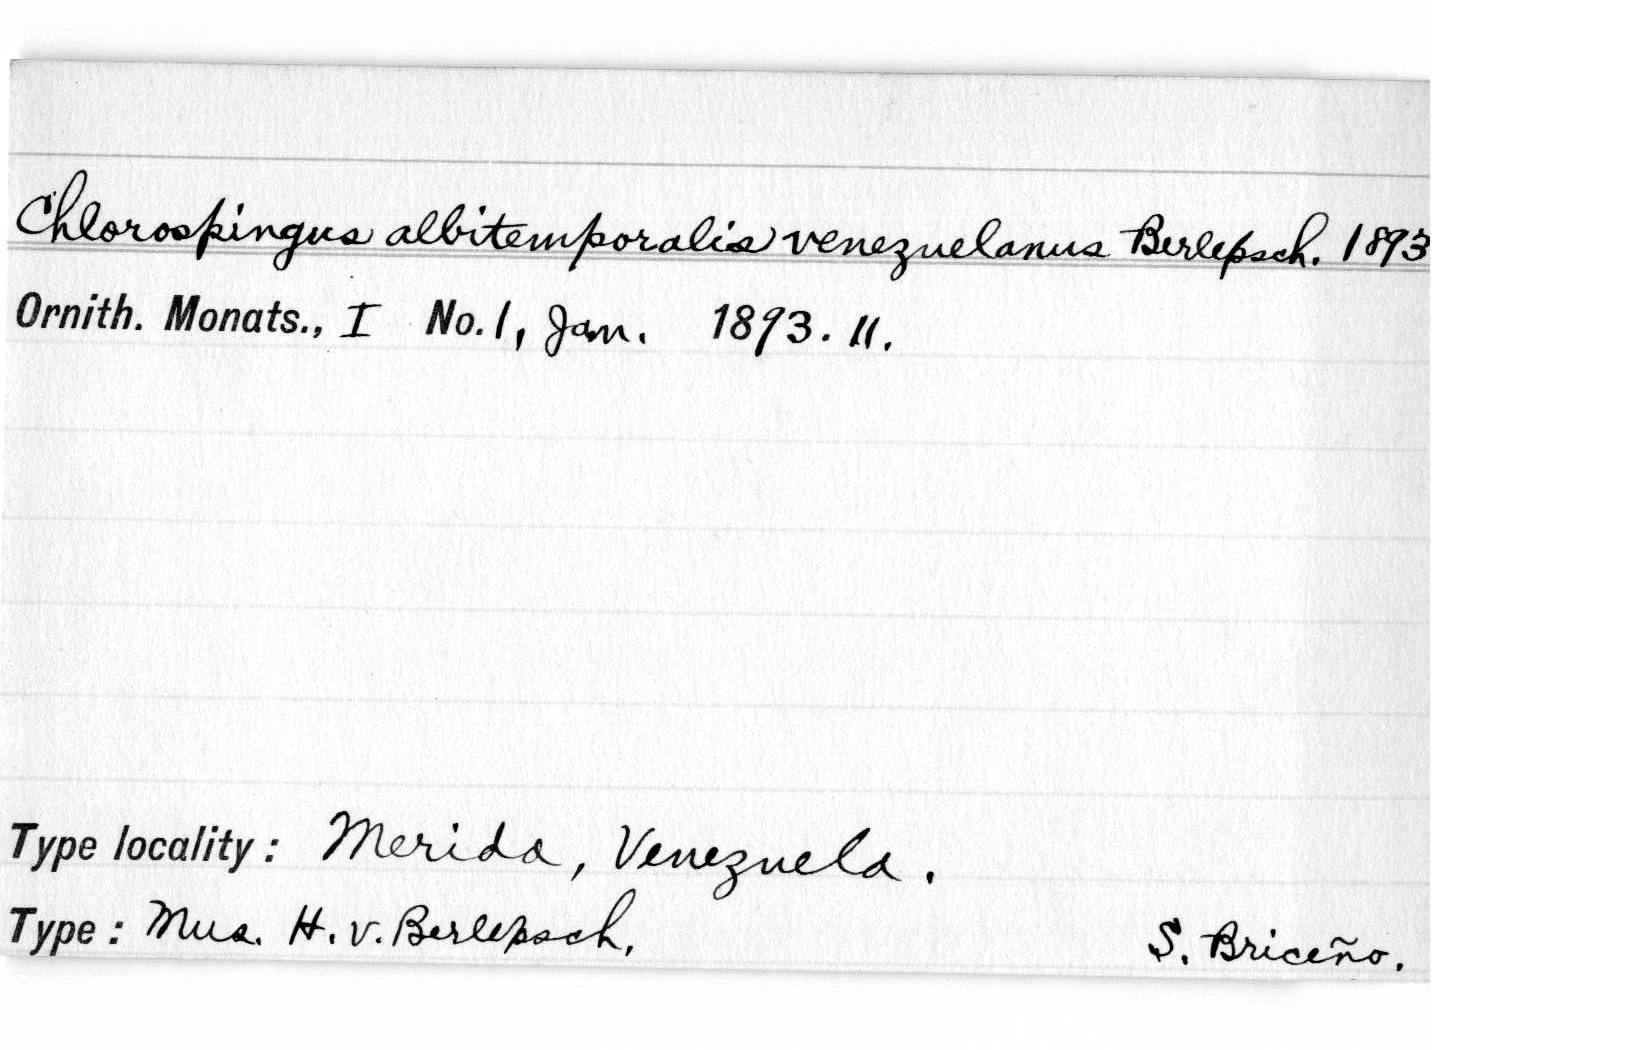 Chlorospingus albitemporalis venezuelanus Berlepsch. 1893
Ornith. Monats., I No. 1, Jan. 1893. 11.
Type locality: Merida, Venezuela.
Type: Mus. H. v. Berlepsch. S. Briceño.